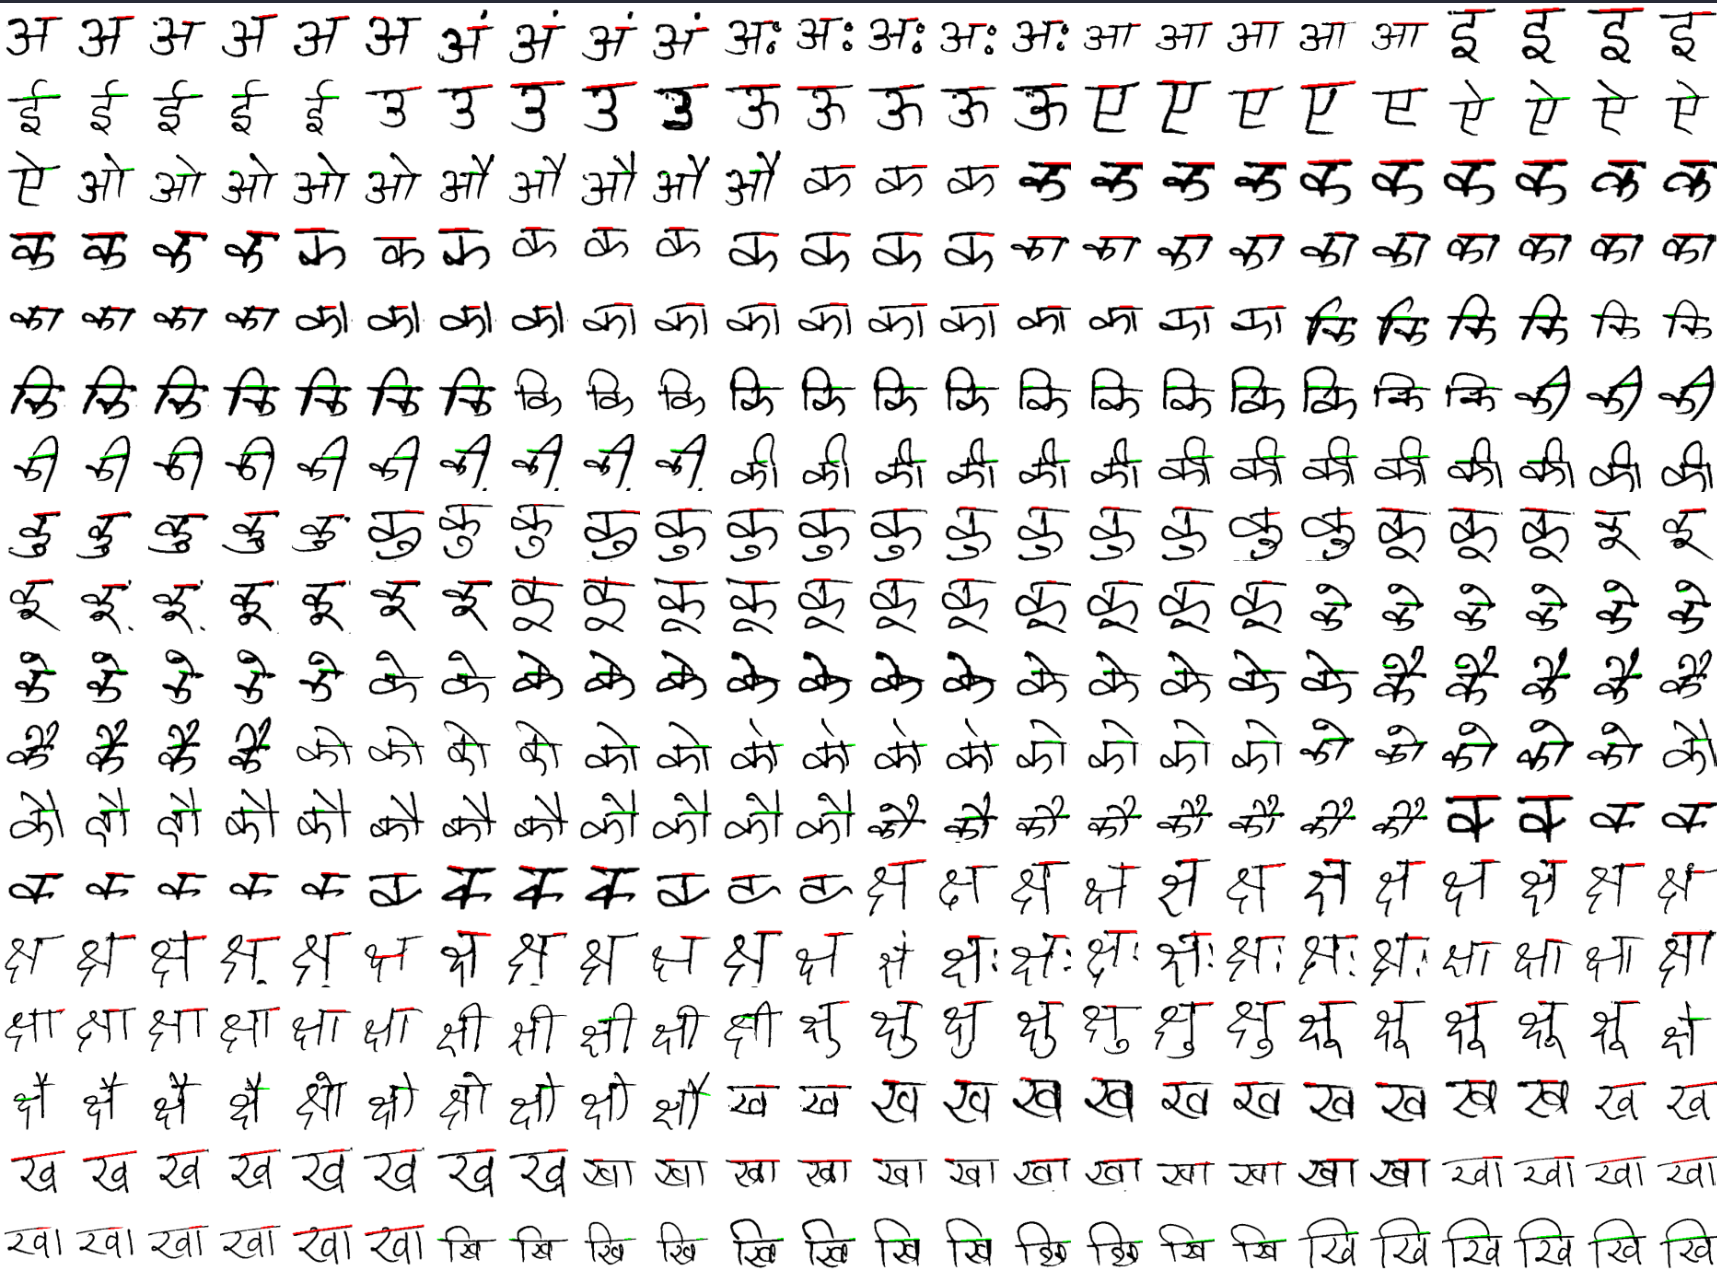 अ अ अ अ अ अ अं अं अं अं अः अः अः अः अः आ आ आ आ आ इ इ इ इ
ई ई ई ई ई उ उ उ उ उ ऊ ऊ ऊ ऊ ऊ ए ए ए ए ए ऐ ऐ ऐ ऐ
ऐ ओ ओ ओ ओ ओ औ औ औ औ औ क क क क क क क क क क क क क
क क क क क क क क क क क क क क का का का का का का का का का का
का का का का का का का का का का का का का का का का का का कि कि कि कि कि कि
कि कि कि कि कि कि कि कि कि कि कि कि कि कि कि कि कि कि कि कि कि की की की
की की की की की की की की की की की की की की की की की की की की की की की की
कु कु कु कु कु कु कु कु कु कु कु कु कु कु कु कु कु कु कु कू कू कू कू कू
कू कू कू कू कू कू कू कू कू कू कू कू कू कू कू कू कू कू के के के के के के
के के के के के के के के के के के के के के के के के के के कै कै कै कै कै
कै कै कै कै को को को को को को को को को को को को को को को को को को को कौ
कौ कौ कौ कौ कौ कौ कौ कौ कौ कौ कौ कौ कौ कौ कौ कौ कौ कौ कौ कौ क क क क
क क क क क क क क क क क क क्ष क्ष क्ष क्ष क्ष क्ष क्ष क्ष क्ष क्ष क्ष क्ष
क्ष क्ष क्ष क्ष क्ष क्ष क्ष क्ष क्ष क्ष क्ष क्ष क्षं क्षः क्षः क्षः क्षः क्षः क्षः क्षः क्षा क्षा क्षा क्षा
क्षा क्षा क्षा क्षा क्षा क्षा क्षी क्षी क्षी क्षी क्षी क्षु क्षु क्षु क्षु क्षु क्षु क्षु क्षू क्षू क्षू क्षू क्षू क्षे
क्षै क्षै क्षै क्षै क्षो क्षो क्षो क्षो क्षो क्षौ ख ख ख ख ख ख ख ख ख ख ख ख ख ख
ख ख ख ख ख ख ख ख खा खा खा खा खा खा खा खा खा खा खा खा खा खा खा खा
खा खा खा खा खा खा खि खि खि खि खि खि खि खि खि खि खि खि खि खि खि खि खि खि